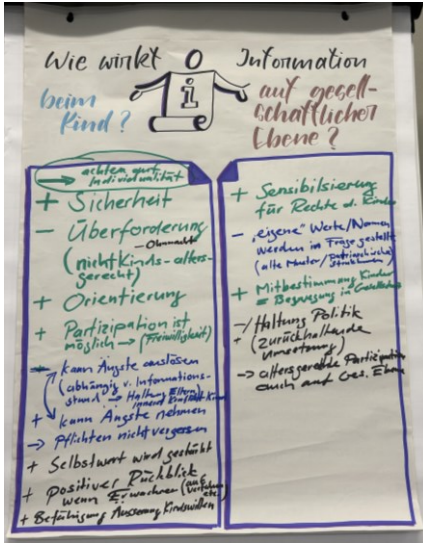 Wie wirkt Information
beim
Kind?
auf gesell-
schaftlicher
Ebene?
i
→ achten auf
Individualität
+ Sicherheit
− Überforderung
– Ohnmacht
(nicht Kinds-alters-
gerecht)
+ Orientierung
+ Partizipation ist
möglich → (Freiwilligkeit)
− kann Ängste auslösen
(abhängig v. Informations-
stand → Haltung Eltern)
+ kann Ängste nehmen
→ Pflichten nicht vergessen
+ Selbstwert wird gestärkt
+ Positiver Rückblick
wenn Erwachsen
+ Befähigung Äusserung Kindswillen
+ Sensibilsierung
für Rechte d. Kinder
− „eigene" Werte/Normen
werden in Frage gestellt
(alte Muster/patriarchische
Strukturen)
+ Mitbestimmung Kinder
= Bewegung in Gesellschaft
−/+ Haltung Politik
(zurückhaltende
Umsetzung)
→ altersgerechte Partizipation
auch auf Ges. Ebene